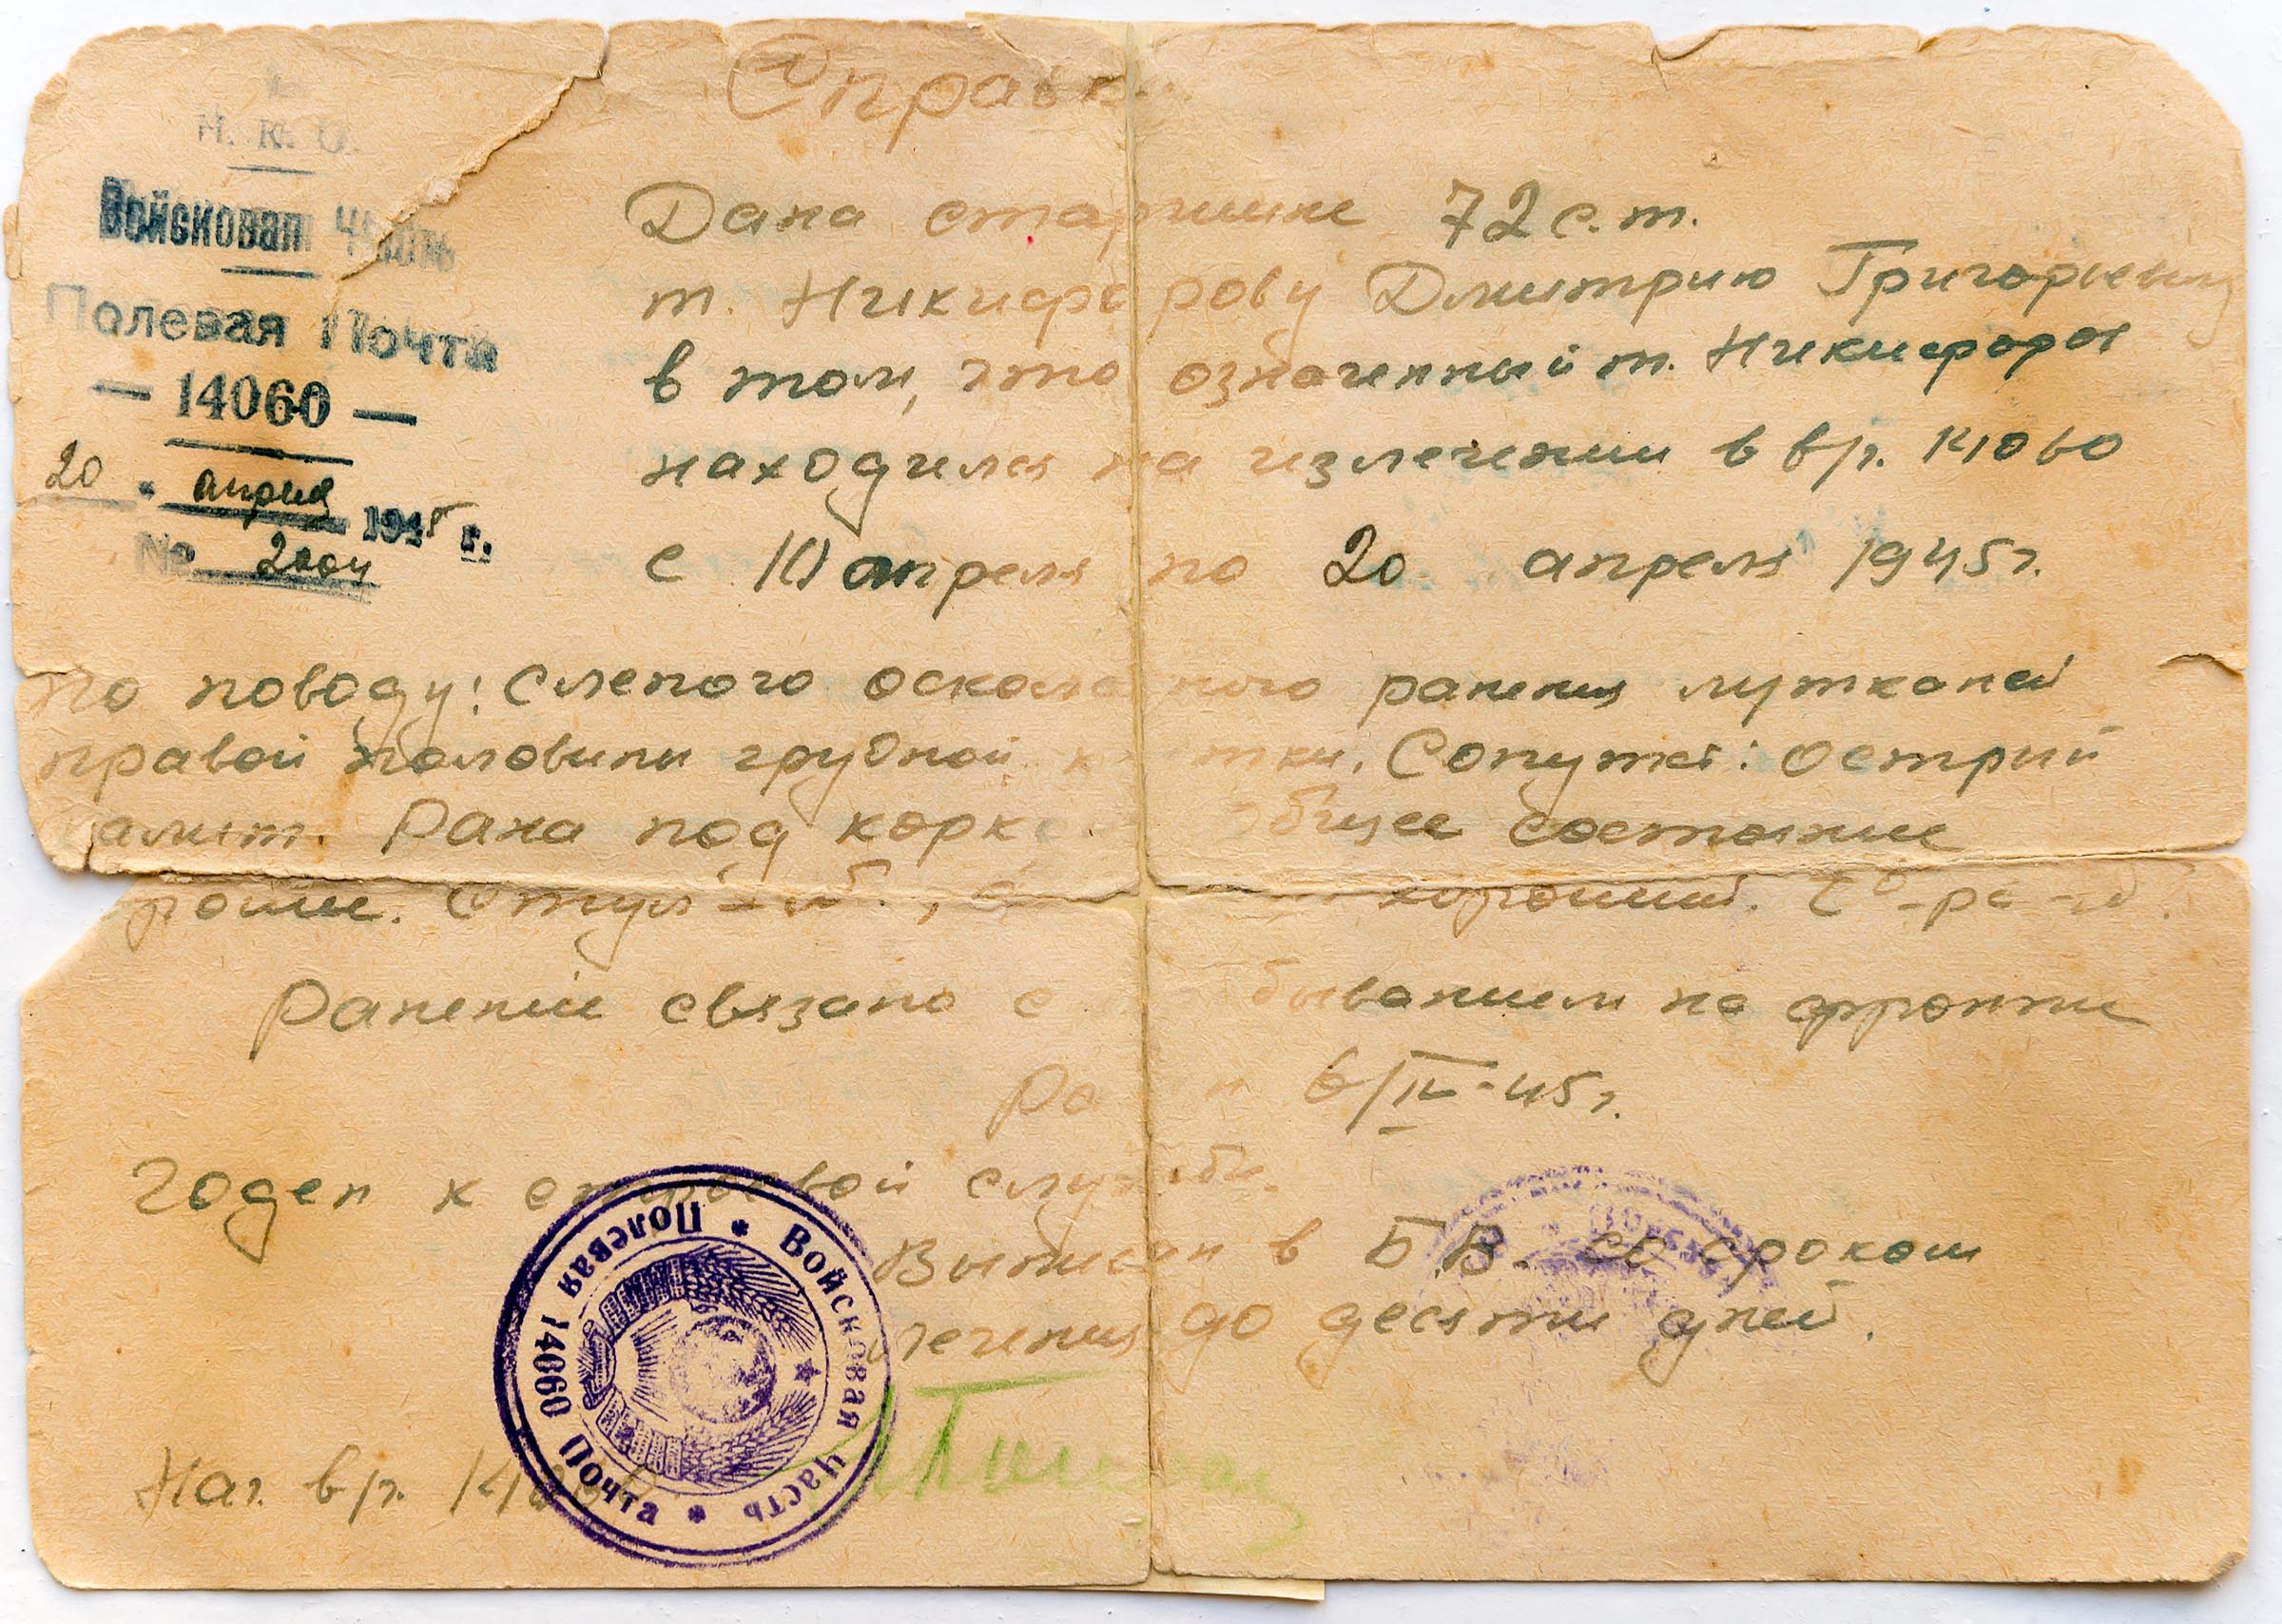 Справк
Н. К. О.
Войсковая Часть
Полевая Почта
— 14060 —
20 " апреля 1945 г.
№ 2004
Дана старшине 72 с.т.
т. Никифорову Дмитрию Григорьевичу
в том, что означенный т. Никифоров
находился на излечении в в/ч.
с 10 апреля по 20 апреля 1945 г.
по поводу: Слепого осколочного ранения мягких тканей
правой половины грудной клетки. Сопутст: Острый
Рана под коркой Общее состояние
рошее. Стул хороший. t°
Ранение связано с быванием на фронте
Ранен 6/IV-45 г.
Годен к строевой службе.
Выписан в Б.В. со сроком
лечения до десяти дней.
Нач.
Войсковая Часть * Полевая Почта 14060 *